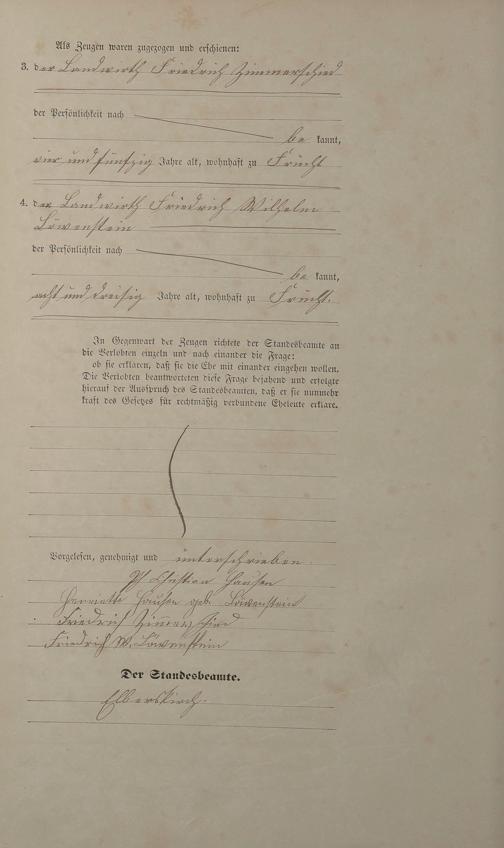 Als Zeugen waren zugezogen und erschienen:
3. der Landwirth Friedrich Zimmerschied
der Persönlichkeit nach
be kannt,
vier und fünfzig Jahre alt, wohnhaft zu Frücht
4. der Landwirth Friedrich Wilhelm
Löwenstein
der Persönlichkeit nach
be kannt,
acht und dreißig Jahre alt, wohnhaft zu Frücht.
In Gegenwart der Zeugen richtete der Standesbeamte an
die Verlobten einzeln und nach einander die Frage:
ob sie erklären, daß sie die Ehe mit einander eingehen wollen.
Die Verlobten beantworteten diese Frage bejahend und erfolgte
hierauf der Ausspruch des Standesbeamten, daß er sie nunmehr
kraft des Gesetzes für rechtmäßig verbundene Eheleute erkläre.
Vorgelesen, genehmigt und unterschrieben.
Christian Hausen
Henriette Hausen geb. Löwenstein
Friedrich Zimmerschied
Friedrich W. Löwenstein
Der Standesbeamte.
Elberskirch.